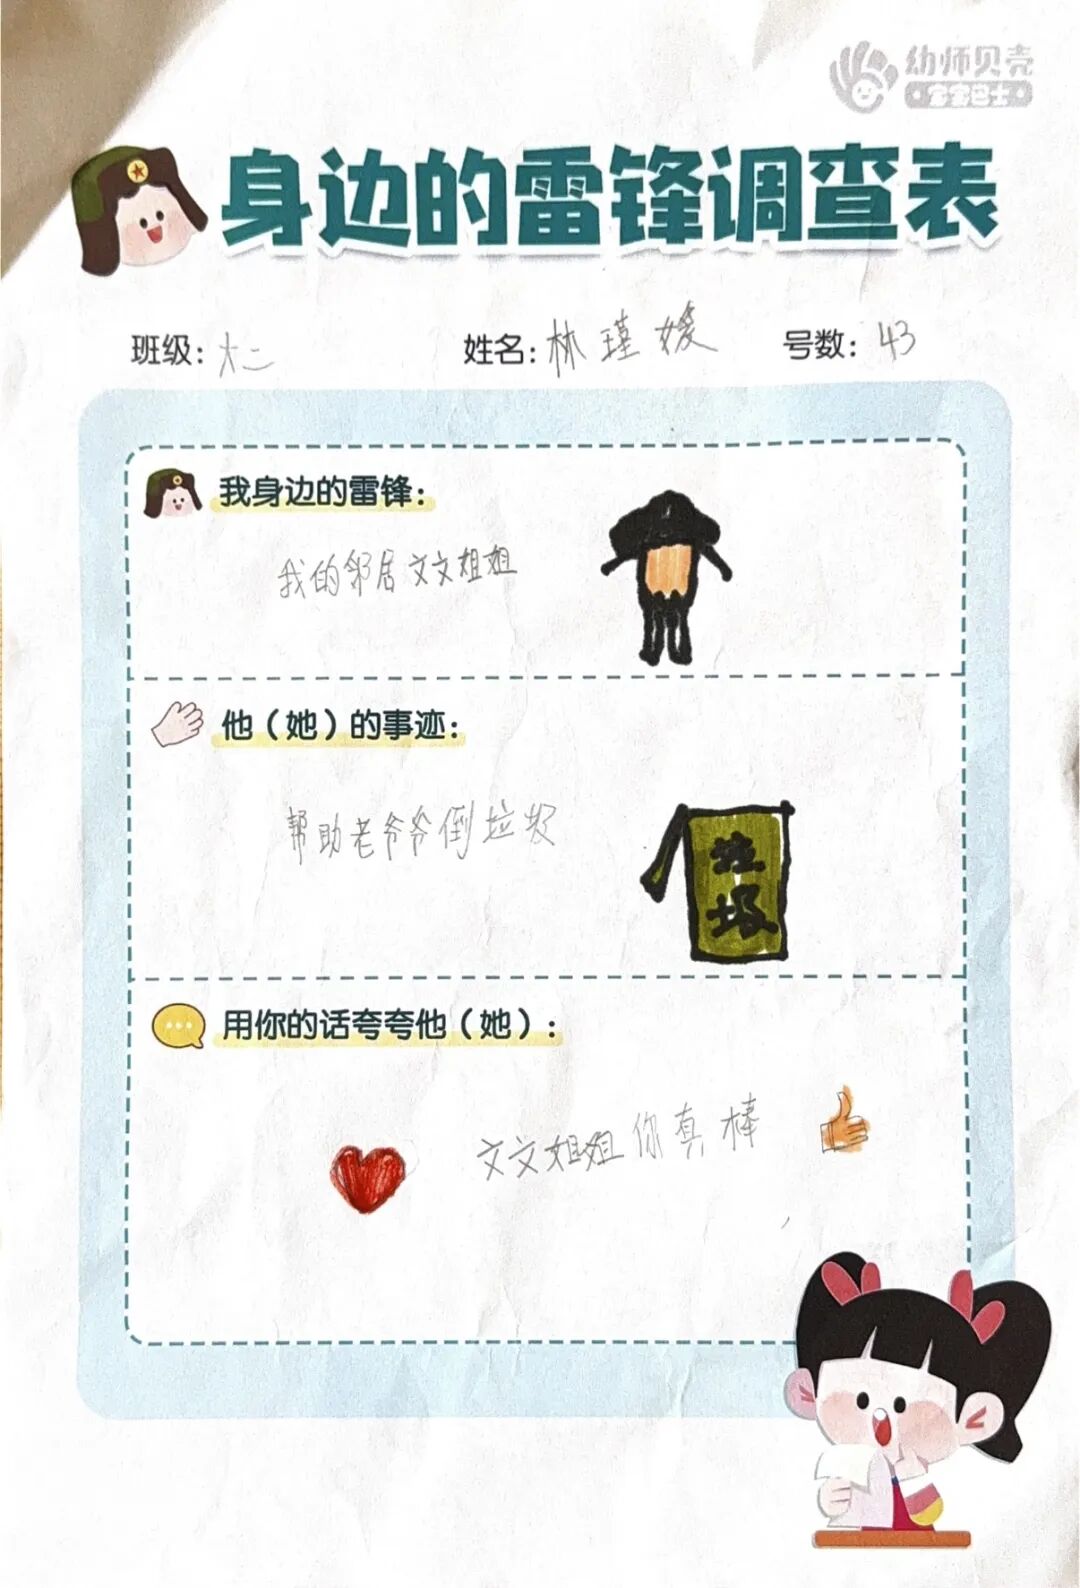 幼师贝壳
宝宝巴士
身边的雷锋调查表
班级：大二 姓名：林瑾媛 号数：43
我身边的雷锋：
我的邻居文文姐姐
他（她）的事迹：
帮助老爷爷倒垃圾
垃
圾
用你的话夸夸他（她）：
文文姐姐你真棒